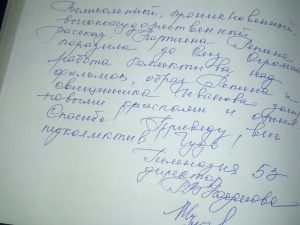 Великолепный, проникновенный
высокохудожественный
рассказ Картина Репина
поразила до слез Огромная
работа коллектива над
фильмом, образ Репина и
священника Иванова
новыми красками и
Спасибо! Приведу весь
педколлектив Чудо!
Гимназия 53
директор